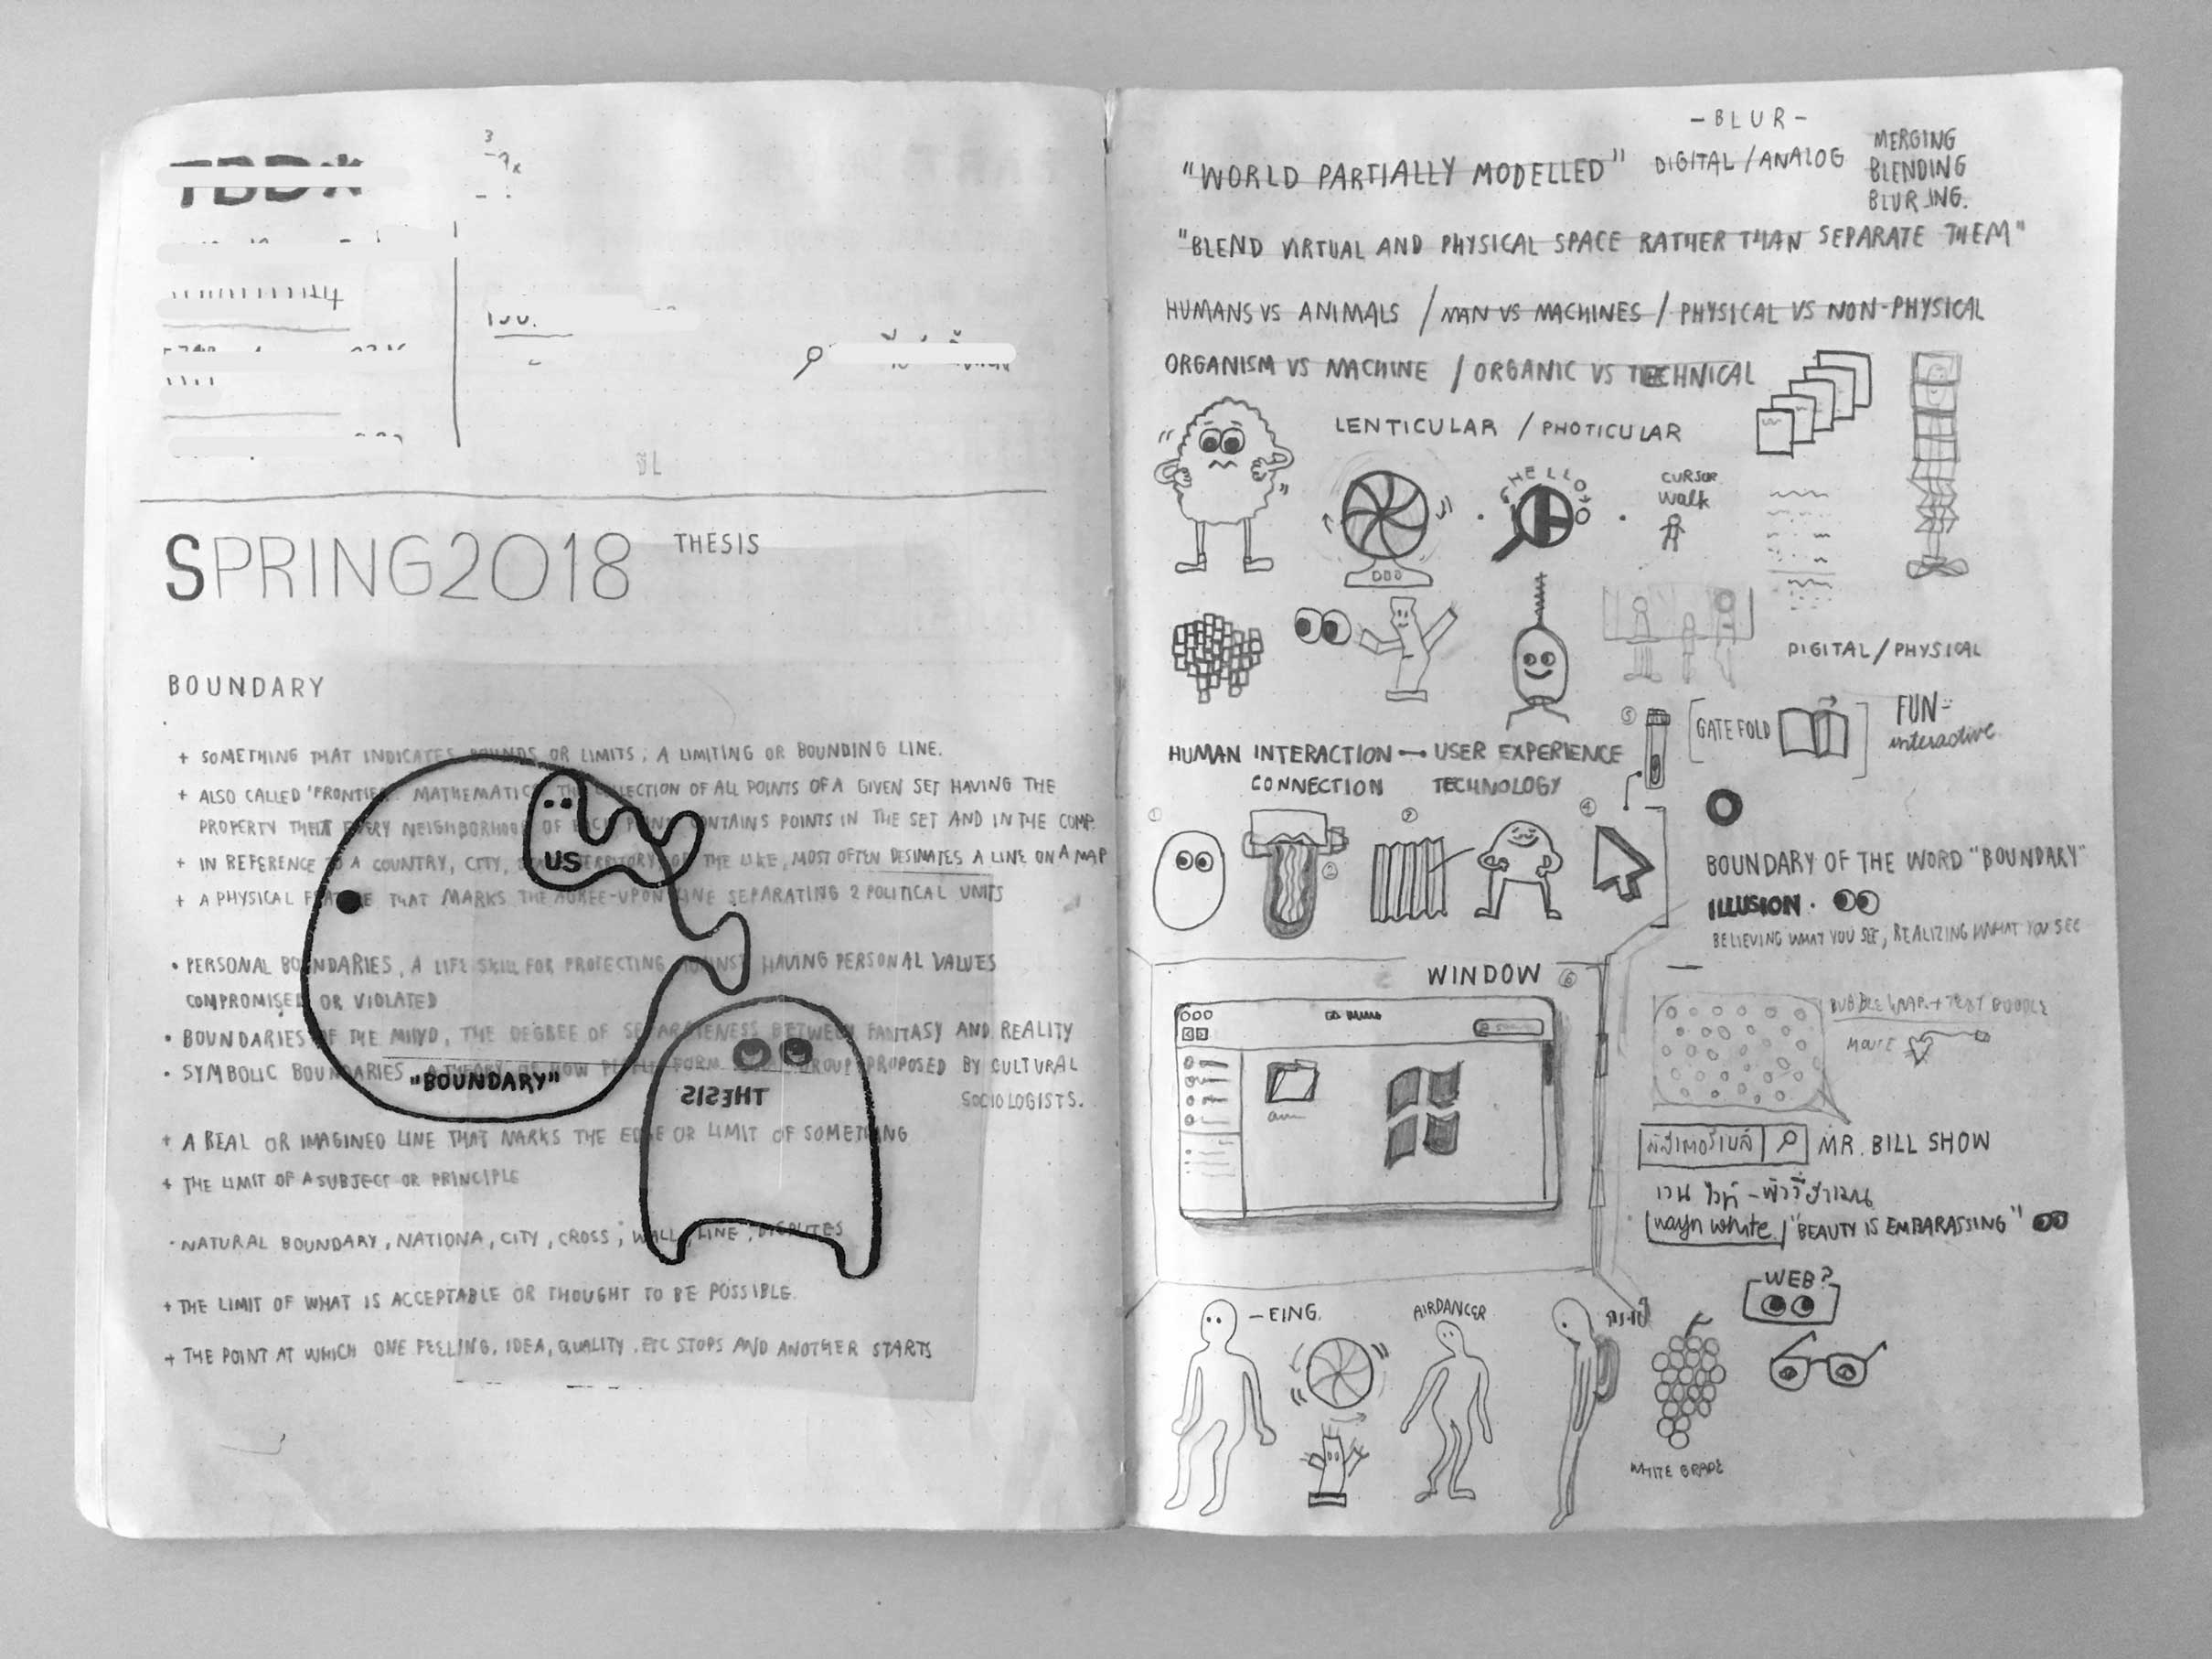 SPRING2018 THESIS
BOUNDARY
+ SOMETHING THAT INDICATES BOUNDS OR LIMITS; A LIMITING OR BOUNDING LINE.
+ ALSO CALLED 'FRONTIER' MATHEMATIC THE COLLECTION OF ALL POINTS OF A GIVEN SET HAVING THE
PROPERTY THAT EVERY NEIGHBORHOOD OF EACH POINT CONTAINS POINTS IN THE SET AND IN THE COMP.
+ IN REFERENCE TO A COUNTRY, CITY, STATE, TERRITORY, OR THE LIKE, MOST OFTEN DESINATES A LINE ON A MAP
+ A PHYSICAL FEATURE THAT MARKS THE AGREE-UPON LINE SEPARATING 2 POLITICAL UNITS
US
• PERSONAL BOUNDARIES, A LIFE SKILL FOR PROTECTING AGAINST HAVING PERSONAL VALUES
COMPROMISED OR VIOLATED
• BOUNDARIES OF THE MIND, THE DEGREE OF SEPARATENESS BETWEEN FANTASY AND REALITY
• SYMBOLIC BOUNDARIES, A THEORY OF HOW PEOPLE FORM GROUP PROPOSED BY CULTURAL
SOCIOLOGISTS.
"BOUNDARY"
THESIS
+ A REAL OR IMAGINED LINE THAT MARKS THE EDGE OR LIMIT OF SOMETHING
+ THE LIMIT OF A SUBJECT OR PRINCIPLE
· NATURAL BOUNDARY, NATIONA, CITY, CROSS, WALL, LINE, DISPUTES
+ THE LIMIT OF WHAT IS ACCEPTABLE OR THOUGHT TO BE POSSIBLE.
+ THE POINT AT WHICH ONE FEELING, IDEA, QUALITY, ETC STOPS AND ANOTHER STARTS
- BLUR -
"WORLD PARTIALLY MODELLED" DIGITAL / ANALOG
MERGING
BLENDING
BLUR_ING.
"BLEND VIRTUAL AND PHYSICAL SPACE RATHER THAN SEPARATE THEM"
HUMANS VS ANIMALS / MAN VS MACHINES / PHYSICAL VS NON-PHYSICAL
ORGANISM VS MACHINE / ORGANIC VS TECHNICAL
LENTICULAR / PHOTICULAR
HELLO
CURSOR
Walk
DIGITAL / PHYSICAL
HUMAN INTERACTION → USER EXPERIENCE
CONNECTION TECHNOLOGY
5
GATE FOLD
FUN
interactive.
1
2
3
4
BOUNDARY OF THE WORD "BOUNDARY"
ILLUSION.
BELIEVING WHAT YOU SEE, REALIZING WHAT YOU SEE
WINDOW 6
BUBBLE WRAP + TEXT BUBBLE
MR. BILL SHOW
wayn white / "BEAUTY IS EMBARASSING"
WEB?
- EING.
AIRDANCER
WHITE GRAPE